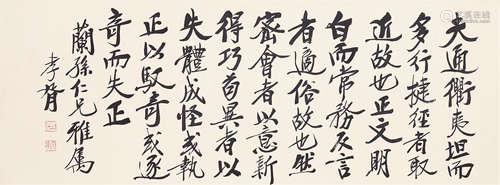 夫通衢夷坦而
多行捷徑者取
近故也正文明
白而常務反言
者適俗故也然
密會者以意新
得巧苟異者以
失體成怪或執
正以馭奇或逐
奇而失正
蘭孫仁兄雅属
李